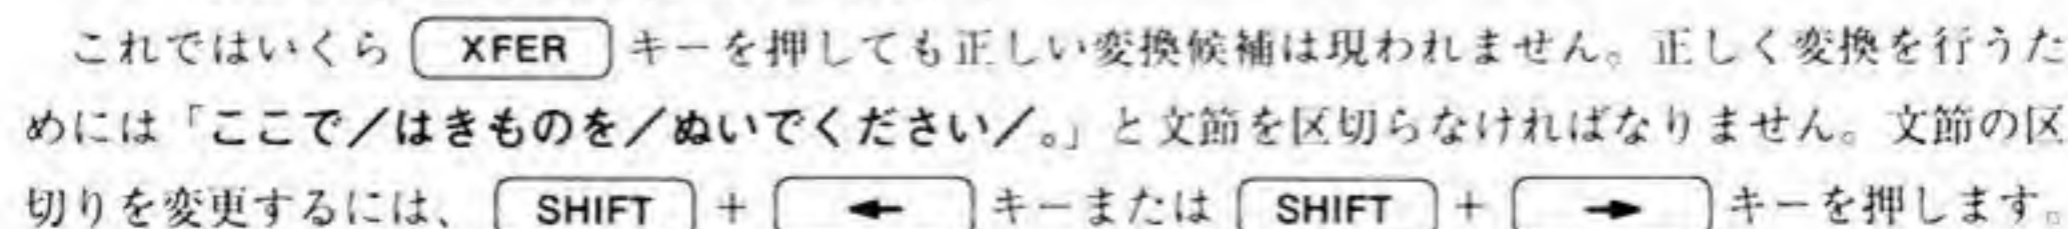 これではいくら XFER キーを押しても正しい変換候補は現われません。正しく変換を行うた
めには「ここで／はきものを／ぬいでください／。」と文節を区切らなければなりません。文節の区
切りを変更するには、 SHIFT + ← キーまたは SHIFT + → キーを押します。